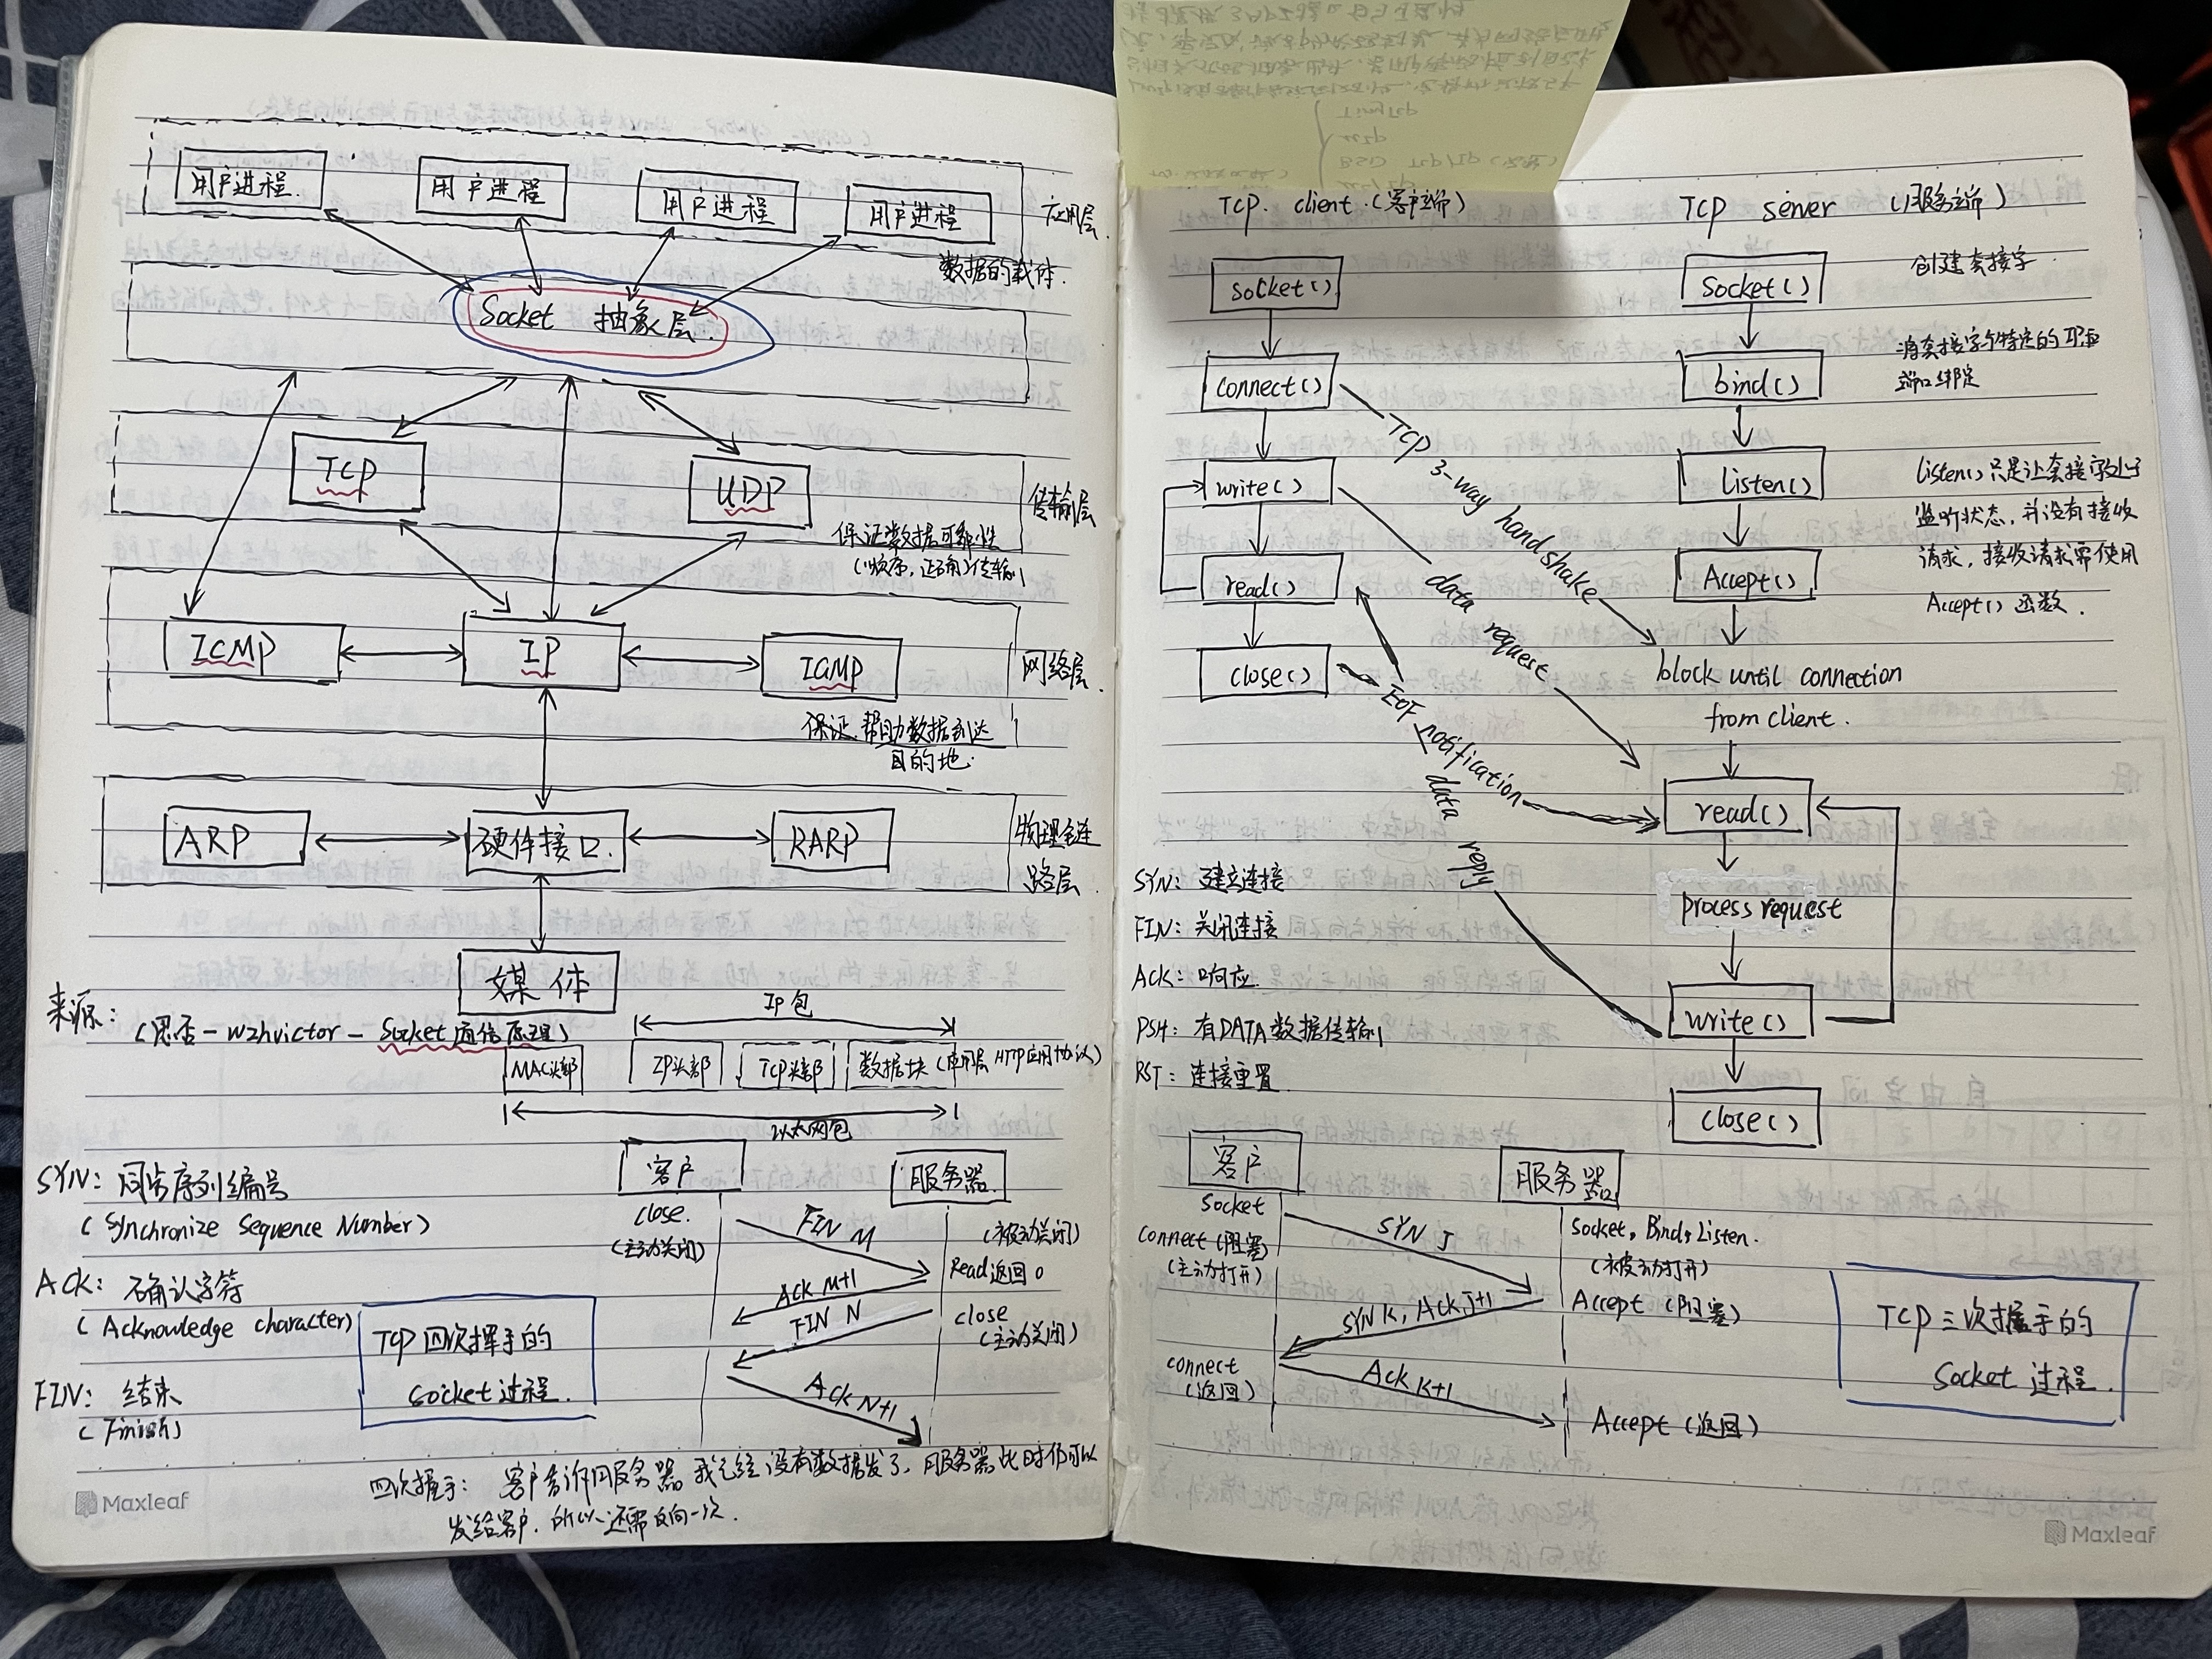 用户进程
用户进程
用户进程
用户进程
应用层
数据的载体
Socket 抽象层
TCP
UDP
传输层
保证数据可靠性
(顺序,正确)传输
ICMP
IP
IGMP
网络层
保证.帮助数据到达
目的地.
ARP
硬件接口
RARP
物理链
路层
媒体
来源:
(思否-wzhvictor-Socket通信原理)
IP包
MAC头部
IP头部
TCP头部
数据块
(应用层 HTTP应用协议)
以太网包
SYN: 同步序列编号
(Synchronize Sequence Number)
ACK: 确认字符
(Acknowledge character)
FIN: 结束
(Finish)
TCP四次挥手的
socket过程.
客户
服务器
close.
(主动关闭)
FIN M
(被动关闭)
Read返回0
ACK M+1
FIN N
close
(主动关闭)
ACK N+1
四次握手: 客户告诉服务器我已经没有数据发了,服务器此时仍可以
发给客户.所以还需反向一次.
Maxleaf
TCP. client.(客户端)
TCP server (服务端)
socket()
connect()
write()
read()
close()
TCP 3-way handshake
data request
EOF notification
data reply
Socket()
创建套接字
bind()
将套接字与特定的IP和
端口绑定
Listen()
Listen()只是让套接字处于
监听状态,并没有接收
请求,接收请求需使用
Accept()函数.
Accept()
block until connection
from client.
read()
process request
write()
close()
SYN: 建立连接
FIN: 关闭连接
ACK: 响应
PSH: 有DATA数据传输
RST: 连接重置
客户
服务器
Socket
connect(阻塞)
(主动打开)
SYN J
Socket, Bind, Listen.
(被动打开)
Accept (阻塞)
SYN K, ACK J+1
connect
(返回)
ACK K+1
Accept (返回)
TCP三次握手的
Socket过程.
Maxleaf